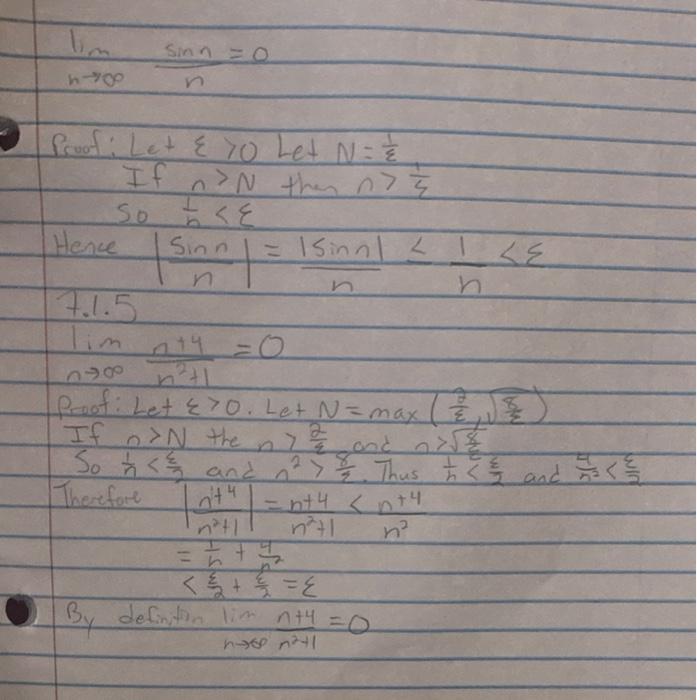 lim n→∞ sin n / n = 0
Proof: Let ε > 0 Let N = 1/ε
If n > N then n > 1/ε
So 1/n < ε
Hence |sin n / n| = |sin n| / n ≤ 1/n < ε
7.1.5
lim n→∞ (n+4)/(n²+1) = 0
Proof: Let ε > 0. Let N = max (2/ε, √(8/ε))
If n > N the n > 2/ε and n > √(8/ε)
So 1/n < ε/2 and n² > 8/ε. Thus 1/n < ε/2 and 4/n² < ε/2
Therefore |(n+4)/(n²+1)| = (n+4)/(n²+1) < (n+4)/n²
= 1/n + 4/n²
< ε/2 + ε/2 = ε
By definition lim n→∞ (n+4)/(n²+1) = 0